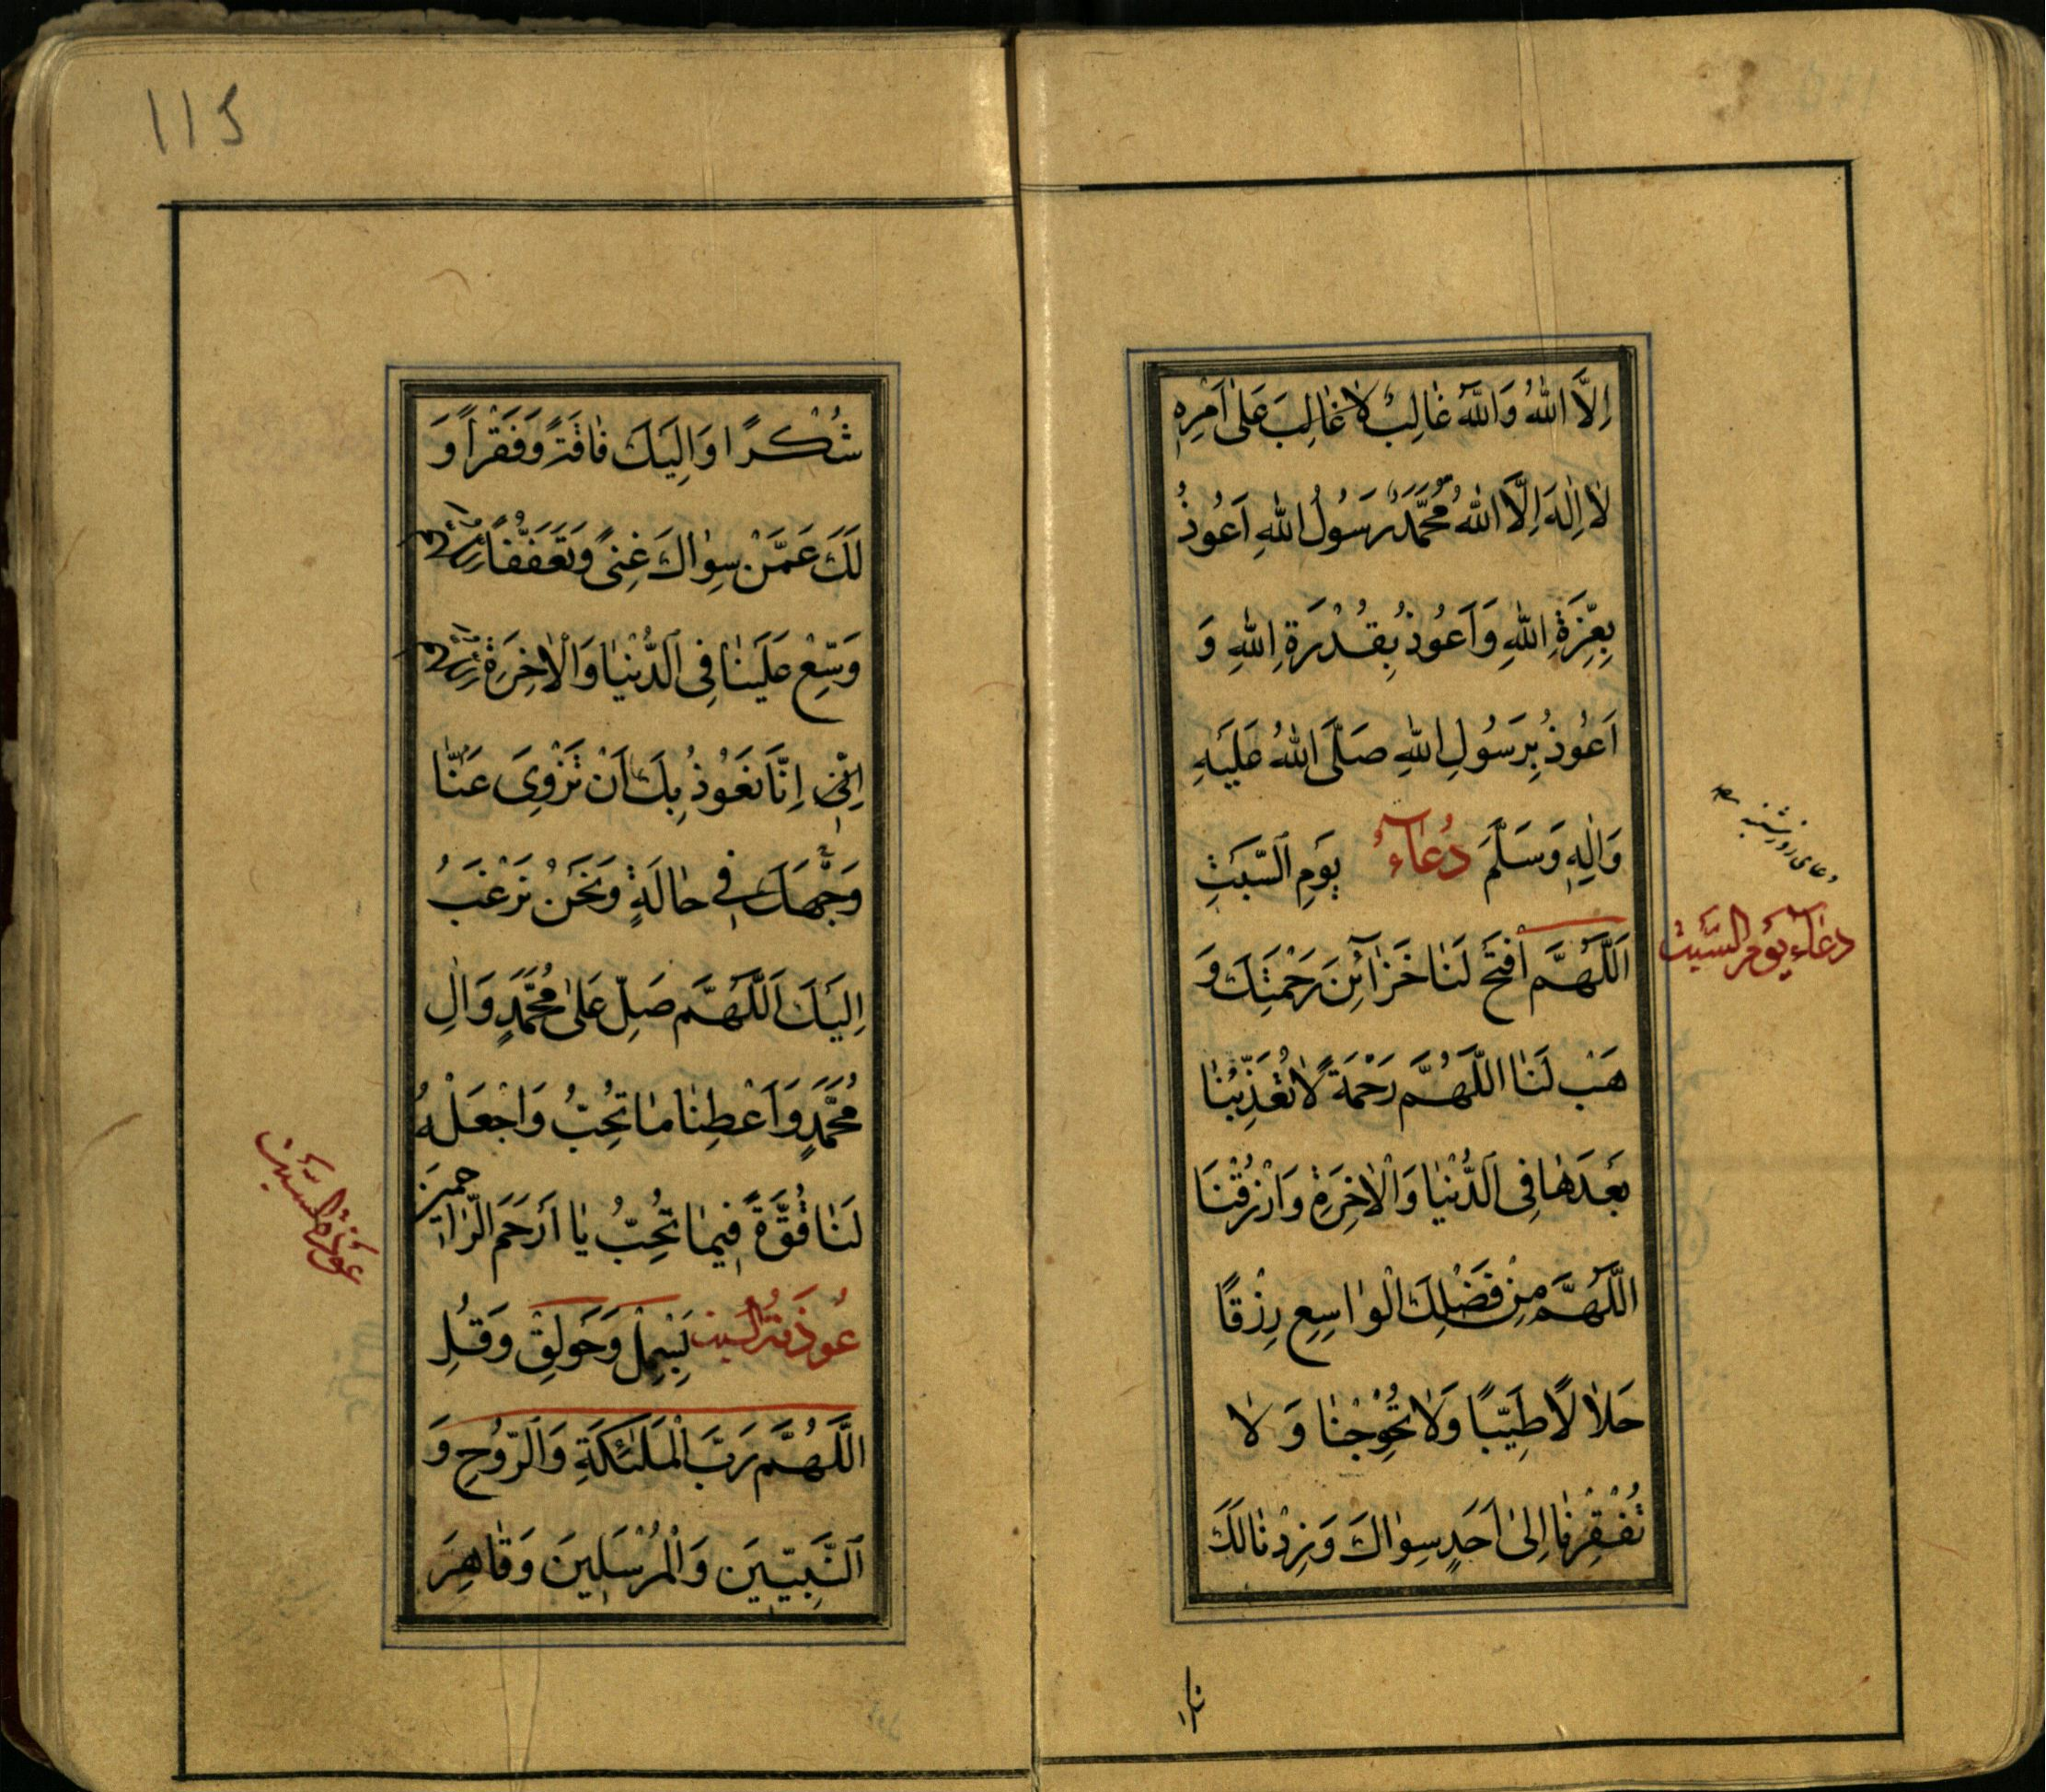 اِلَّا اللهُ وَاللهُ غٰالِبٌ لاٰ غٰالِبَ عَلىٰ اَمْرِهِ
لاٰ اِلٰهَ اِلَّا اللهُ مُحَمَّدٌ رَسُولُ اللهِ اَعُوذُ
بِعِزَّةِ اللهِ وَاَعُوذُ بِقُدْرَةِ اللهِ وَ
اَعُوذُ بِرَسُولِ اللهِ صَلَّى اللهُ عَلَيْهِ
وَاٰلِهِ وَسَلَّمَ دُعٰآءُ يَوْمِ السَّبْتِ
اَللّٰهُمَّ افْتَحْ لَنٰا خَزٰآئِنَ رَحْمَتِكَ وَ
هَبْ لَنٰا اللّٰهُمَّ رَحْمَةً لاٰ تُعَذِّبْنٰا
بَعْدَهٰا فِى الدُّنْيٰا وَالْاٰخِرَةِ وَارْزُقْنٰا
اللّٰهُمَّ مِنْ فَضْلِكَ الْوٰاسِعِ رِزْقًا
حَلاٰلًا طَيِّبًا وَلاٰ تُحْوِجْنٰا وَ لاٰ
تُفْقِرْنٰا اِلىٰ اَحَدٍ سِوٰاكَ وَزِدْنٰا لَكَ
دعاى روز شنبه
دعٰاء يَوْمِ السَّبْت
شُكْرًا وَاِلَيْكَ فٰاقَةً وَفَقْرًا وَ
لَكَ عَمَّنْ سِوٰاكَ غِنىً وَتَعَفُّفًا
وَسِّعْ عَلَيْنٰا فِى الدُّنْيٰا وَالْاٰخِرَةِ
اِنّٰا نَعُوذُ بِكَ اَنْ تَزْوِىَ عَنّٰا
وَجْهَكَ فِى حٰالَةٍ وَنَحْنُ نَرْغَبُ
اِلَيْكَ اَللّٰهُمَّ صَلِّ عَلىٰ مُحَمَّدٍ وَاٰلِ
مُحَمَّدٍ وَاَعْطِنٰا مٰا تُحِبُّ وَاجْعَلْهُ
لَنٰا قُوَّةً فِيمٰا تُحِبُّ يٰا اَرْحَمَ الرّٰاحِمِينَ
عُوذَةُ السبت بَسْمِلْ وَحَوْلِقْ وَقُلِ
اللّٰهُمَّ رَبَّ الْمَلٰئِكَةِ وَالرُّوحِ وَ
النَّبِيّينَ وَالْمُرْسَلِينَ وَقٰاهِرَ
عُوذَة السبت